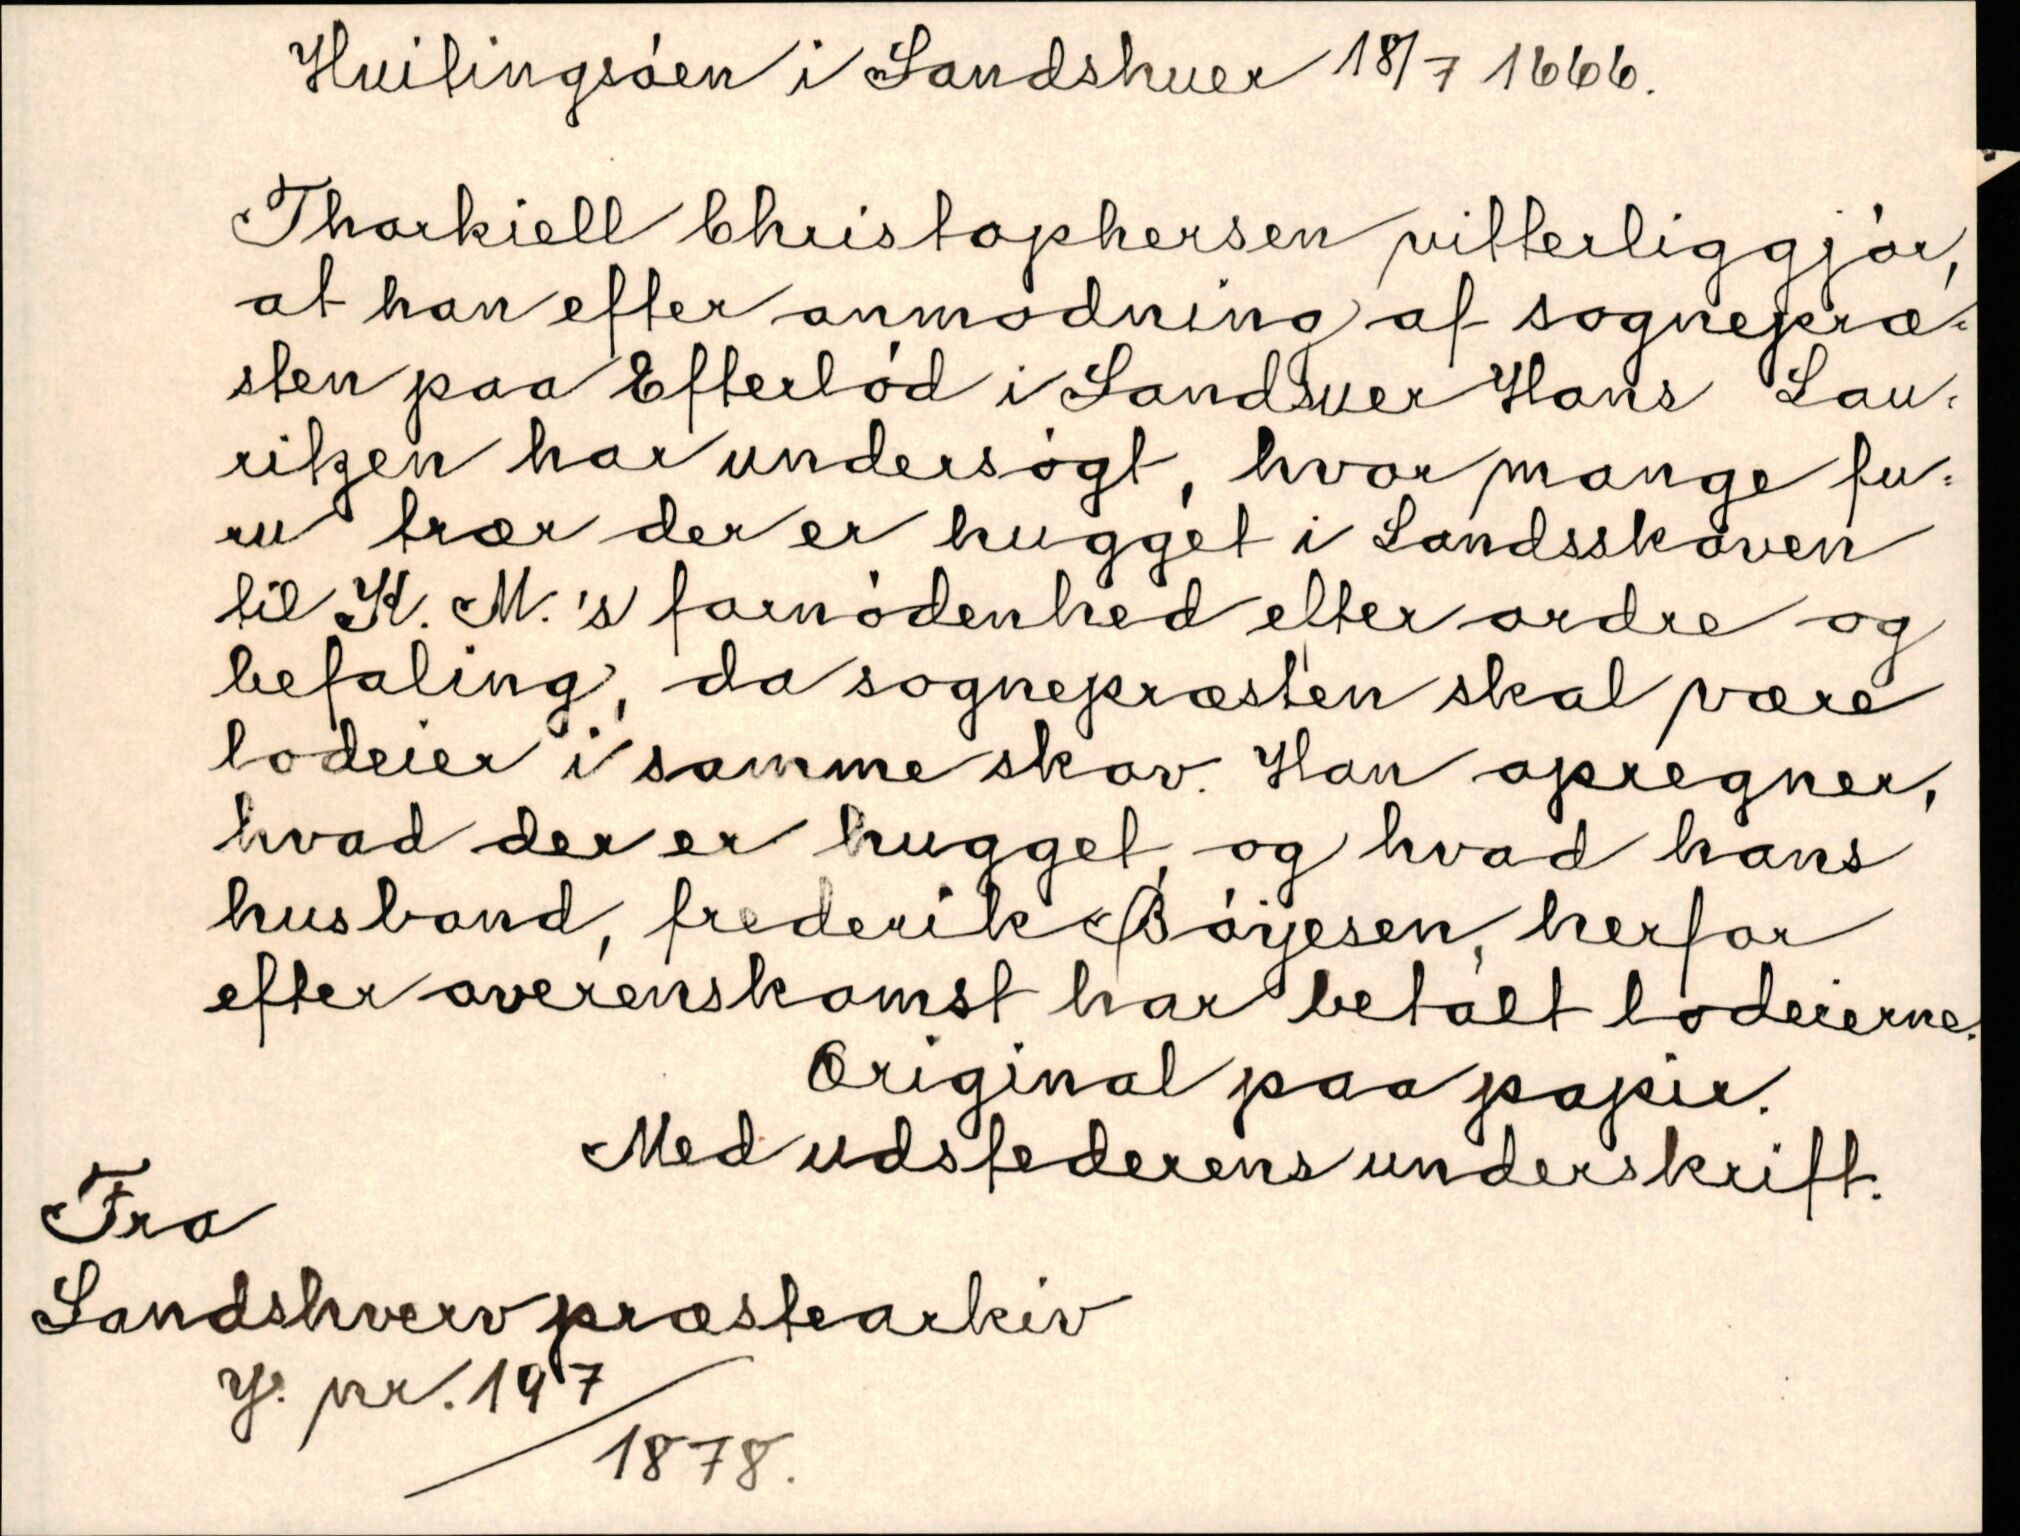 Huitingsóen i Sandshuer 18/7 1666.
Thorkiell Christophersen vitterliggjór,
at han efter anmodning af sognepræ-
sten paa Efterlód i Sandsuer Hans Lau-
ritzen har undersógt, hvor mange fu-
ru trær der er hugget i Landsskoven
til K. M.'s fornódenhed efter ordre og
befaling, da sognepræsten skal være
lodeier i samme skov. Han opregner,
hvad der er hugget, og hvad hans
husbond, frederik Bóyesen, herfor
efter overenskomst har betalt lodeierne.
Original paa papir.
Med udstederens underskrift.
Fra
Sandshverv præstearkiv
J. nr. 197/
1878.